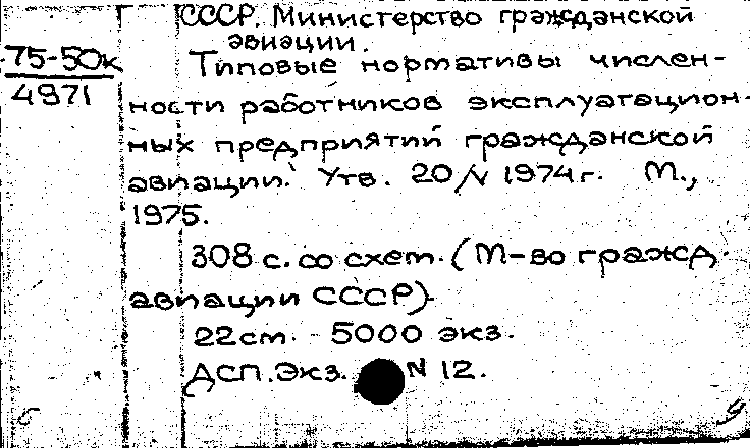 СССР. Министерство гражданской
авиации.
75-50к
4971
Типовые нормативы числен-
ности работников эксплуатацион-
ных предприятий гражданской
авиации. Утв. 20/V 1974 г. М.,
1975.
308 с. со схем. (М-во гражд.
авиации СССР).
22 см. 5000 экз.
ДСП. Экз. N 12.